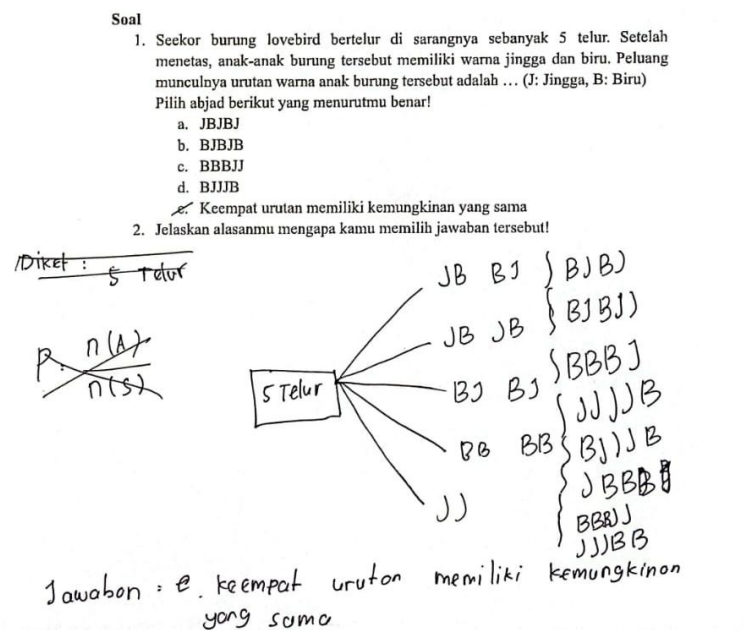 Soal
1. Seekor burung lovebird bertelur di sarangnya sebanyak 5 telur. Setelah
menetas, anak-anak burung tersebut memiliki warna jingga dan biru. Peluang
munculnya urutan warna anak burung tersebut adalah … (J: Jingga, B: Biru)
Pilih abjad berikut yang menurutmu benar!
a. JBJBJ
b. BJBJB
c. BBBJJ
d. BJJJB
e. Keempat urutan memiliki kemungkinan yang sama
2. Jelaskan alasanmu mengapa kamu memilih jawaban tersebut!
Diket :
5 Telur
P = n(A)
n(S)
5 Telur
JB BJ
JB JB
BJ BJ
BB BB
JJ
BJBJ
BJBJJ
BBBJ
JJJJB
BJJJB
JBBB
BBBJJ
JJJBB
Jawaban : e. keempat urutan memiliki kemungkinan
yang sama